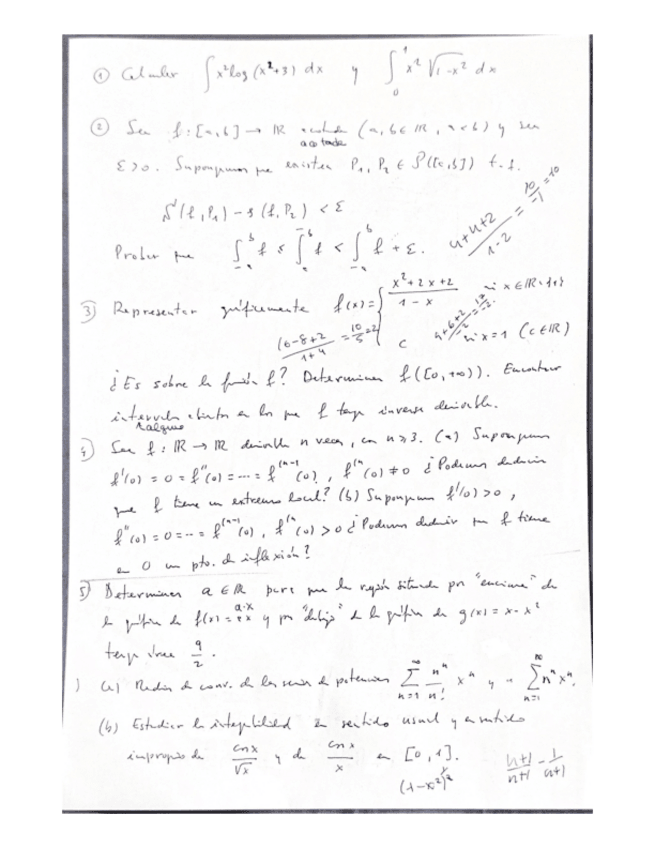 ① Calcular ∫ x² log (x²+3) dx y ∫₀¹ x² √(1-x²) dx
② Sea f: [a,b] → ℝ acotada (a,b ∈ ℝ, a<b) y sea
acotada
ε>0. Supongamos que existen P₁, P₂ ∈ 𝒫([a,b]) t.q.
S(f,P₁) - s(f,P₂) < ε
(4+4+2)/(1-2) = 10/-1 = 10
Probar que ∫ₐᵇ f ≤ ∫ₐᵇ f < ∫ₐᵇ f + ε.
3) Representar gráficamente f(x) = { (x²+2x+2)/(1-x) si x ∈ ℝ-{1}
c si x=1 (c ∈ ℝ)
(16-8+2)/(1+4) = 10/5 = 2
¿Es sobre la función f? Determinar f([0,+∞)). Encontrar
intervalos abiertos en los que f tenga inversa derivable.
4) Sea f: ℝ → ℝ derivable n veces, con n≥3. (a) Supongamos
f'(0) = 0 = f''(0) = ... = f⁽ⁿ⁻¹(0), f⁽ⁿ(0) ≠ 0 ¿Podemos deducir
que f tiene un extremo local? (b) Supongamos f'(0) > 0,
f''(0) = 0 = ... = f⁽ⁿ⁻¹(0), f⁽ⁿ(0) > 0 ¿Podemos deducir que f tiene
en 0 un pto. de inflexión?
5) Determinar a ∈ ℝ para que la región situada por "encima" de
la gráfica de f(x) = a·x y por "debajo" de la gráfica de g(x) = x - x²
tenga área 9/2.
) (a) Radio de conv. de las series de potencias ∑ₙ₌₁^∞ nⁿ/n! xⁿ y ∑ₙ₌₁^∞ nⁿ xⁿ.
(b) Estudiar la integrabilidad en sentido usual y en sentido
impropio de cos x/√x y de cos x/x en [0,1].
(1-x²)
(n+1)/(n+1) - 1/(n+1)